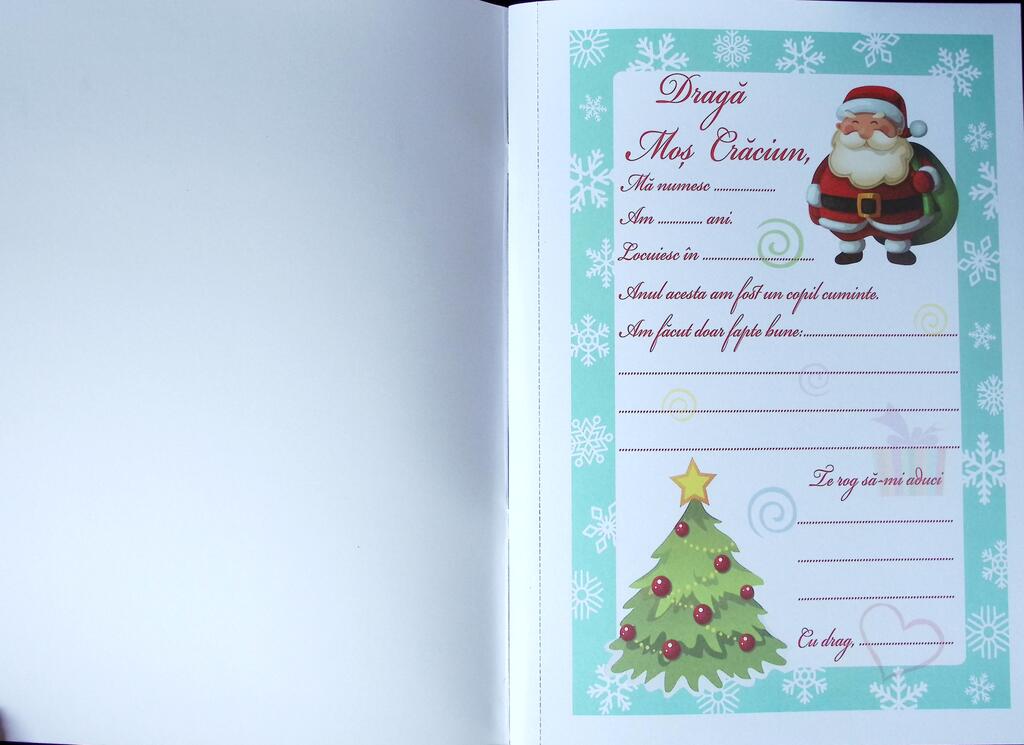 Dragă
Moș Crăciun,
Mă numesc .....................
Am ............... ani.
Locuiesc în ......................................
Anul acesta am fost un copil cuminte.
Am făcut doar fapte bune:....................................................
....................................................................................................................
....................................................................................................................
....................................................................................................................
Te rog să-mi aduci
.....................................................
.....................................................
.....................................................
Cu drag, ................................